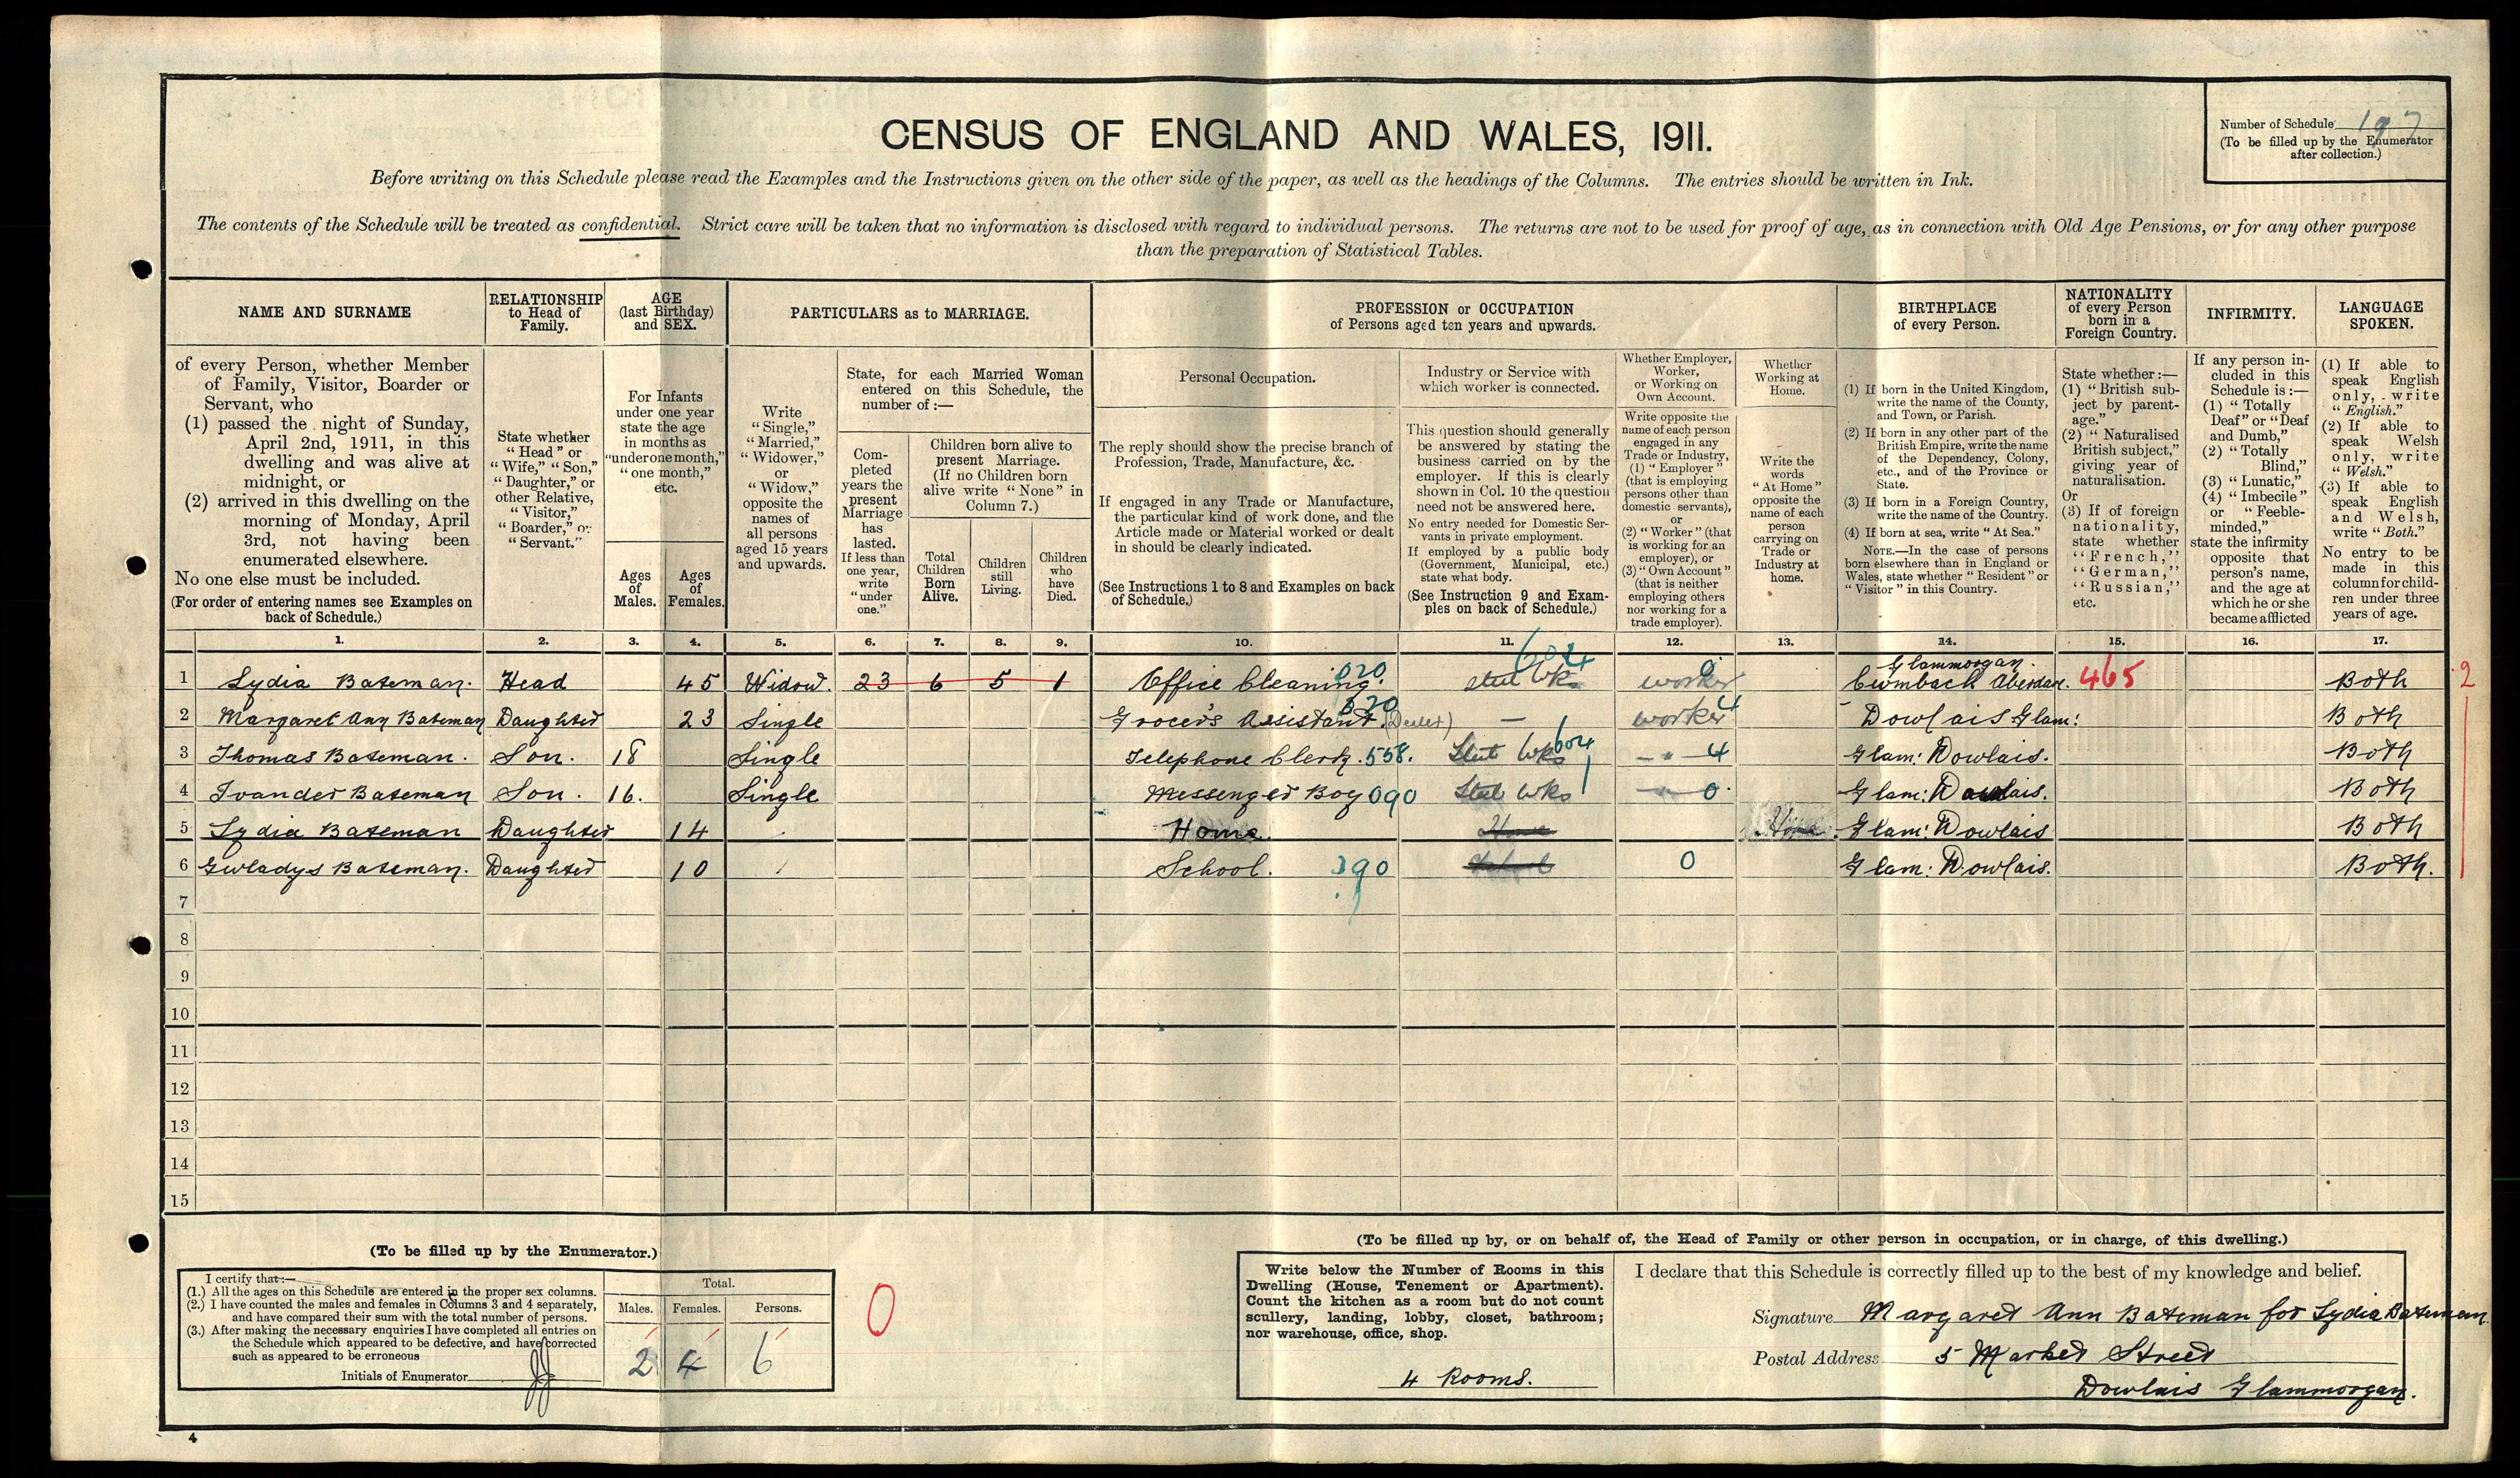 CENSUS OF ENGLAND AND WALES, 1911.
Number of Schedule 197
(To be filled up by the Enumerator
after collection.)
Before writing on this Schedule please read the Examples and the Instructions given on the other side of the paper, as well as the headings of the Columns. The entries should be written in Ink.
The contents of the Schedule will be treated as confidential. Strict care will be taken that no information is disclosed with regard to individual persons. The returns are not to be used for proof of age, as in connection with Old Age Pensions, or for any other purpose
than the preparation of Statistical Tables.
NAME AND SURNAME
of every Person, whether Member
of Family, Visitor, Boarder or
Servant, who
(1) passed the night of Sunday,
April 2nd, 1911, in this
dwelling and was alive at
midnight, or
(2) arrived in this dwelling on the
morning of Monday, April
3rd, not having been
enumerated elsewhere.
No one else must be included.
(For order of entering names see Examples on
back of Schedule.)
RELATIONSHIP
to Head of
Family.
State whether
"Head" or
"Wife," "Son,"
"Daughter," or
other Relative,
"Visitor,"
"Boarder," or
"Servant."
AGE
(last Birthday)
and SEX.
For Infants
under one year
state the age
in months as
"under one month,"
"one month,"
etc.
Ages
of
Males.
Ages
of
Females.
PARTICULARS as to MARRIAGE.
Write
"Single,"
"Married,"
"Widower,"
or
"Widow,"
opposite the
names of
all persons
aged 15 years
and upwards.
State, for each Married Woman
entered on this Schedule, the
number of :—
Com-
pleted
years the
present
Marriage
has
lasted.
If less than
one year,
write
"under
one."
Children born alive to
present Marriage.
(If no Children born
alive write "None" in
Column 7.)
Total
Children
Born
Alive.
Children
still
Living.
Children
who
have
Died.
PROFESSION or OCCUPATION
of Persons aged ten years and upwards.
Personal Occupation.
The reply should show the precise branch of
Profession, Trade, Manufacture, &c.
If engaged in any Trade or Manufacture,
the particular kind of work done, and the
Article made or Material worked or dealt
in should be clearly indicated.
(See Instructions 1 to 8 and Examples on back
of Schedule.)
Industry or Service with
which worker is connected.
This question should generally
be answered by stating the
business carried on by the
employer. If this is clearly
shown in Col. 10 the question
need not be answered here.
No entry needed for Domestic Ser-
vants in private employment.
If employed by a public body
(Government, Municipal, etc.)
state what body.
(See Instruction 9 and Exam-
ples on back of Schedule.)
Whether Employer,
Worker,
or Working on
Own Account.
Write opposite the
name of each person
engaged in any
Trade or Industry,
(1) "Employer"
(that is employing
persons other than
domestic servants),
or
(2) "Worker" (that
is working for an
employer), or
(3) "Own Account"
(that is neither
employing others
nor working for a
trade employer).
Whether
Working at
Home.
Write the
words
"At Home"
opposite the
name of each
person
carrying on
Trade or
Industry at
home.
BIRTHPLACE
of every Person.
(1) If born in the United Kingdom,
write the name of the County,
and Town, or Parish.
(2) If born in any other part of the
British Empire, write the name
of the Dependency, Colony,
etc., and of the Province or
State.
(3) If born in a Foreign Country,
write the name of the Country.
(4) If born at sea, write "At Sea."
NOTE.—In the case of persons
born elsewhere than in England or
Wales, state whether "Resident" or
"Visitor" in this Country.
NATIONALITY
of every Person
born in a
Foreign Country.
State whether :—
(1) "British sub-
ject by parent-
age."
(2) "Naturalised
British subject,"
giving year of
naturalisation.
Or
(3) If of foreign
nationality,
state whether
"French,"
"German,"
"Russian,"
etc.
INFIRMITY.
If any person in-
cluded in this
Schedule is :—
(1) "Totally
Deaf" or "Deaf
and Dumb,"
(2) "Totally
Blind,"
(3) "Lunatic,"
(4) "Imbecile"
or "Feeble-
minded,"
state the infirmity
opposite that
person's name,
and the age at
which he or she
became afflicted
LANGUAGE
SPOKEN.
(1) If able to
speak English
only, write
"English."
(2) If able to
speak Welsh
only, write
"Welsh."
(3) If able to
speak English
and Welsh,
write "Both."
No entry to be
made in this
column for child-
ren under three
years of age.
1. 2. 3. 4. 5. 6. 7. 8. 9. 10. 11. 12. 13. 14. 15. 16. 17.
1 Lydia Bateman. Head 45 Widow. 23 6 5 1 Office Cleaning. 020 Steel Wks 604 worker 0 Glammorgan. Cwmback Aberdare. 465 Both 2
2 Margaret Ann Bateman Daughter 23 Single Grocer's Assistant. (Dealer) 820 — worker 4 Dowlais Glam: Both
3 Thomas Bateman. Son. 18 Single Telephone Clerk. 558. Steel Wks 604 — " — 4 Glam: Dowlais. Both
4 Ivander Bateman Son. 16. Single Messenger Boy 090 Steel Wks — " — 0 Glam: Dowlais. Both
5 Lydia Bateman Daughter 14 Home. Home Home Glam: Dowlais Both
6 Gwladys Bateman. Daughter 10 School. 390 School 0 Glam: Dowlais. Both.
7
8
9
10
11
12
13
14
15
(To be filled up by the Enumerator.)
I certify that :—
(1.) All the ages on this Schedule are entered in the proper sex columns.
(2.) I have counted the males and females in Columns 3 and 4 separately,
and have compared their sum with the total number of persons.
(3.) After making the necessary enquiries I have completed all entries on
the Schedule which appeared to be defective, and have corrected
such as appeared to be erroneous
Initials of Enumerator JJ
Total.
Males. Females. Persons.
2 4 6
0
(To be filled up by, or on behalf of, the Head of Family or other person in occupation, or in charge, of this dwelling.)
Write below the Number of Rooms in this
Dwelling (House, Tenement or Apartment).
Count the kitchen as a room but do not count
scullery, landing, lobby, closet, bathroom;
nor warehouse, office, shop.
4 Rooms.
I declare that this Schedule is correctly filled up to the best of my knowledge and belief.
Signature Margaret Ann Bateman for Lydia Bateman.
Postal Address 5 Market Street
Dowlais Glammorgan.
4